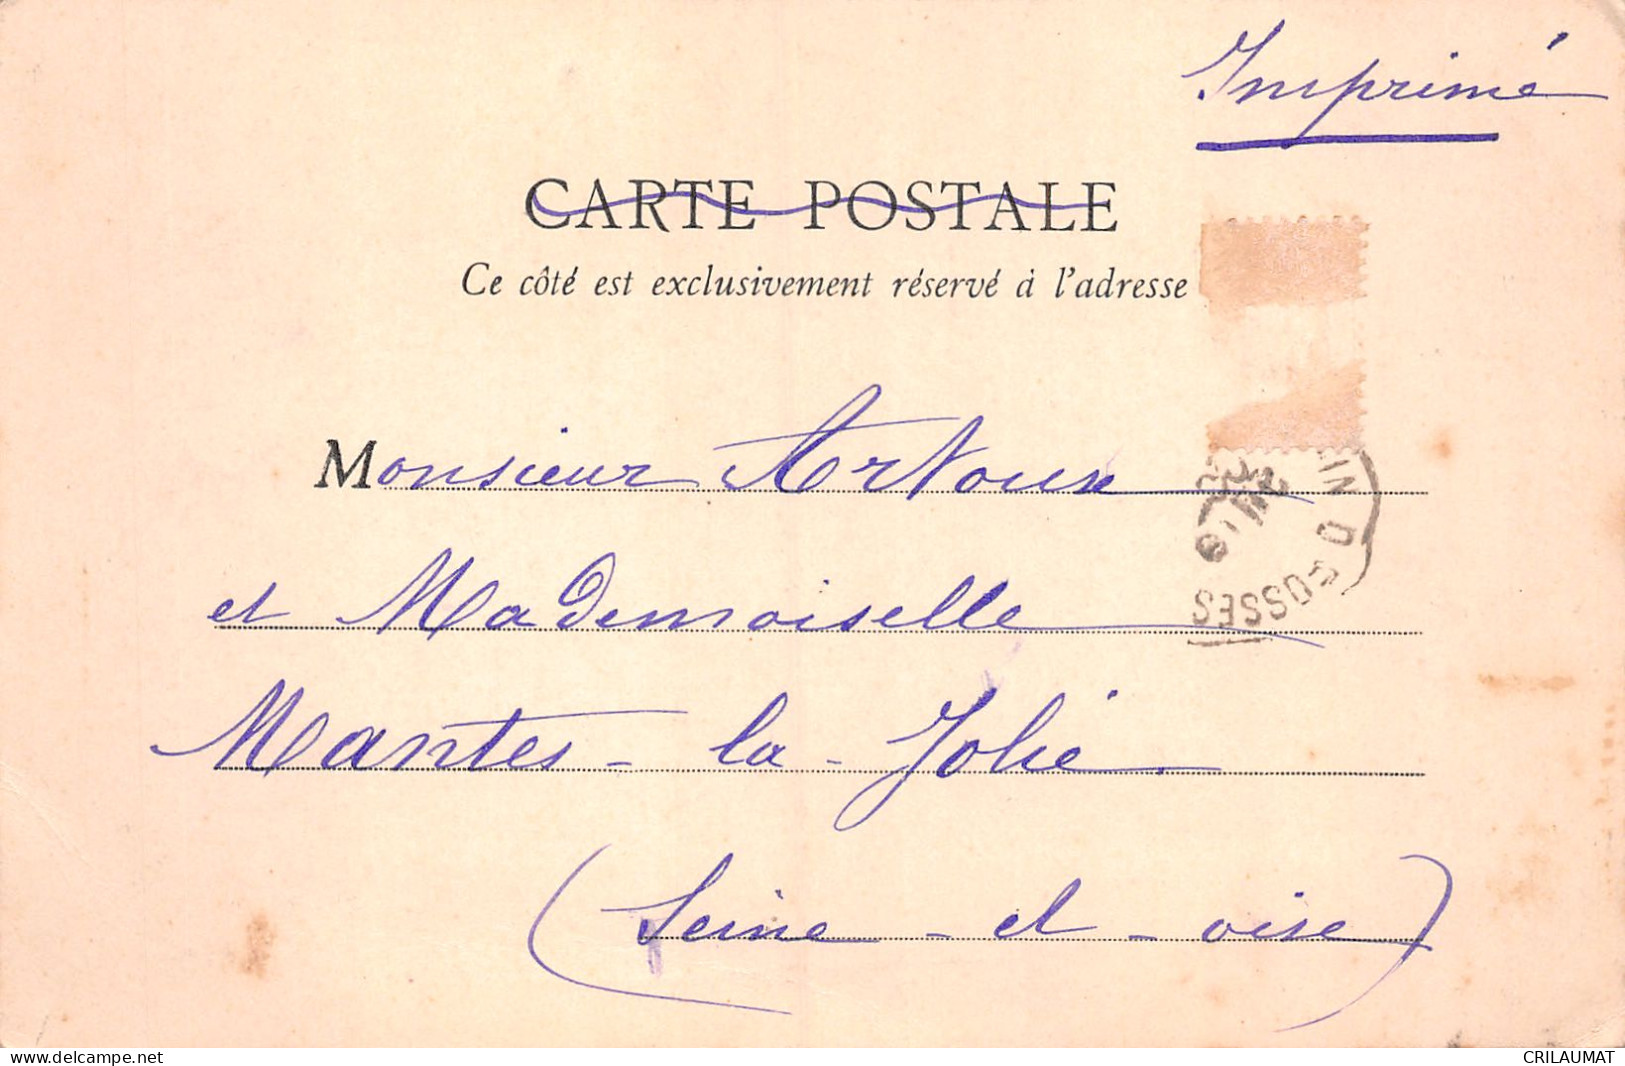 Imprimé
CARTE POSTALE
Ce côté est exclusivement réservé à l'adresse
Monsieur Artoux
et Mademoiselle
Mantes - la - Jolie
(Seine - et - oise)
delcampe.net
CRILAUMAT